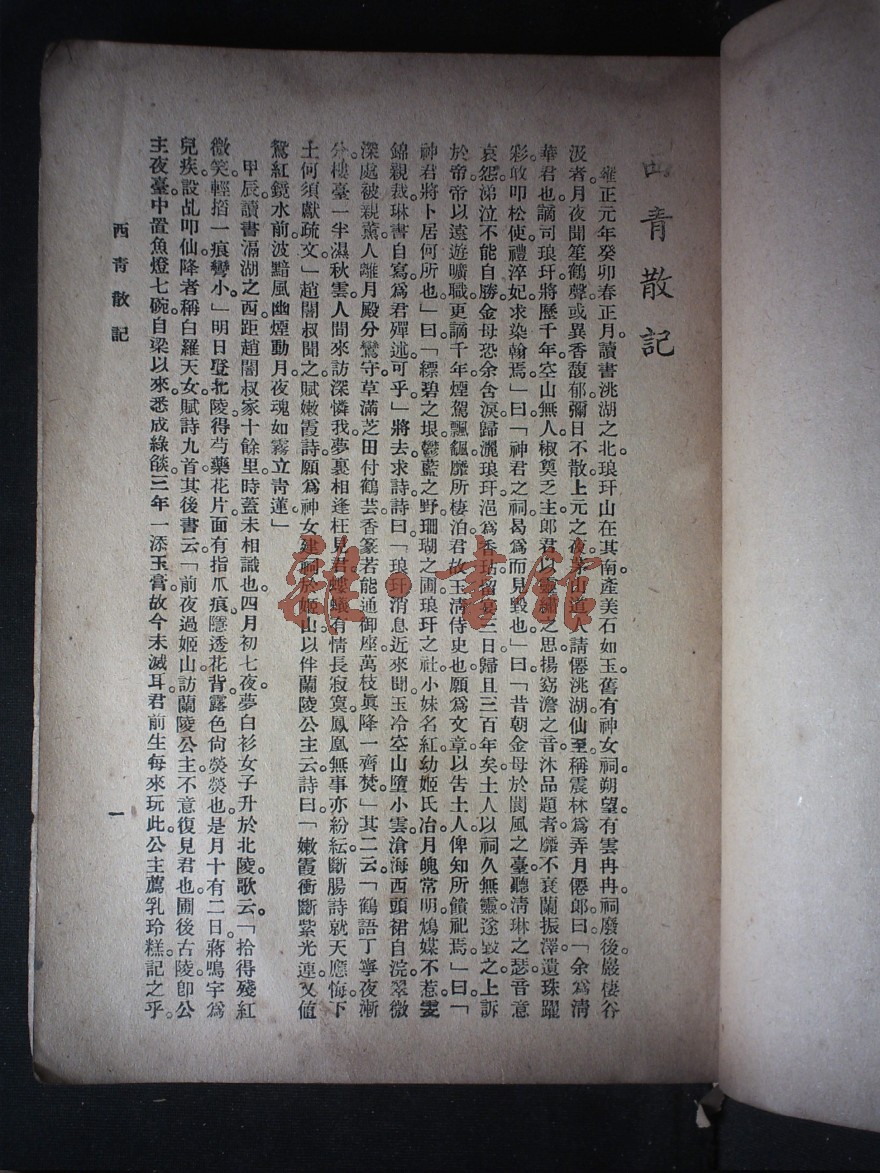 西青散記
雍正元年癸卯春正月。讀書洮湖之北。琅玕山在其南。產美石如玉。舊有神女祠。朔望。有雲冉冉。祠廢後。巖棲谷
汲者。月夜聞笙鶴聲。或異香馥郁。彌日不散。上元之夜。茅山道人請僊。洮湖仙至。稱震林為弄月僊郎。曰「余為清
華君也。謫司琅玕。將歷千年。空山無人。椒奠乏主。郎君以靈繡之思。揚窈澹之音。沐品題者。靡不哀蘭振澤。遺珠躍
彩。敢叩松使。禮淬妃。求染翰焉。」曰「神君之祠。曷為而見毀也」曰「昔朝金母於閬風之臺。聽清琳之瑟。音意
哀怨。涕泣不能自勝。金母恐余含淚歸灑琅玕。浥為香玷。留宴三日。歸且三百年矣。土人以祠久無靈。遂毀之。上訴
於帝。帝以遠遊曠職。更謫千年。煙駕飄飆。靡所棲泊。君故玉清侍史也。願為文章以告土人。俾知所饋祀焉。」曰「
神君將卜居何所也」曰「縹碧之垠。鬱藍之野。珊瑚之圃。琅玕之社。小妹名紅幼。姬氏冶。月魄常明。鴆媒不惹。雯
錦親裁。琳書自寫。為君殫述。可乎」將去。求詩。詩曰「琅玕消息近來聞。玉冷空山墮小雲。滄海西頭裙自浣。翠微
深處被親薰。人離月殿分鸞守。草滿芝田付鶴芸。香篆若能通御座。萬枝眞降一齊焚」其二云「鶴語丁寧夜漸
分。樓臺一半濕秋雲。人間來訪深憐我。夢裏相逢枉見君。螻蟻有情長寂寞。鳳凰無事亦紛紜。斷腸詩就天應悔。下
土何須獻疏文」趙闇叔聞之。賦嫩霞詩。願為神女建祠於姬山。以伴蘭陵公主云。詩曰「嫩霞衝斷紫光連。又値
鴛紅鏡水前。波黯風幽煙動月。夜魂如霧立青蓮」
甲辰。讀書滆湖之西。距趙闇叔家十餘里。時蓋未相識也。四月初七夜。夢白衫女子。升於北陵。歌云。「拾得殘紅
微笑。輕掐一痕彎小。」明日登北陵。得芍藥花片。面有指爪痕。隱透花背。露色尙熒熒也。是月十有二日。蔣鳴宇為
兒疾。設乩叩仙。降者稱白羅天女。賦詩九首。其後書云「前夜過姬山。訪蘭陵公主。不意復見君也。圃後古陵。即公
主夜臺。中置魚燈七碗。自梁以來。悉成綠燄。三年一添玉膏。故今未滅耳。君前生每來玩此。公主薦乳玲糕。記之乎。
西青散記
一
雜·書館